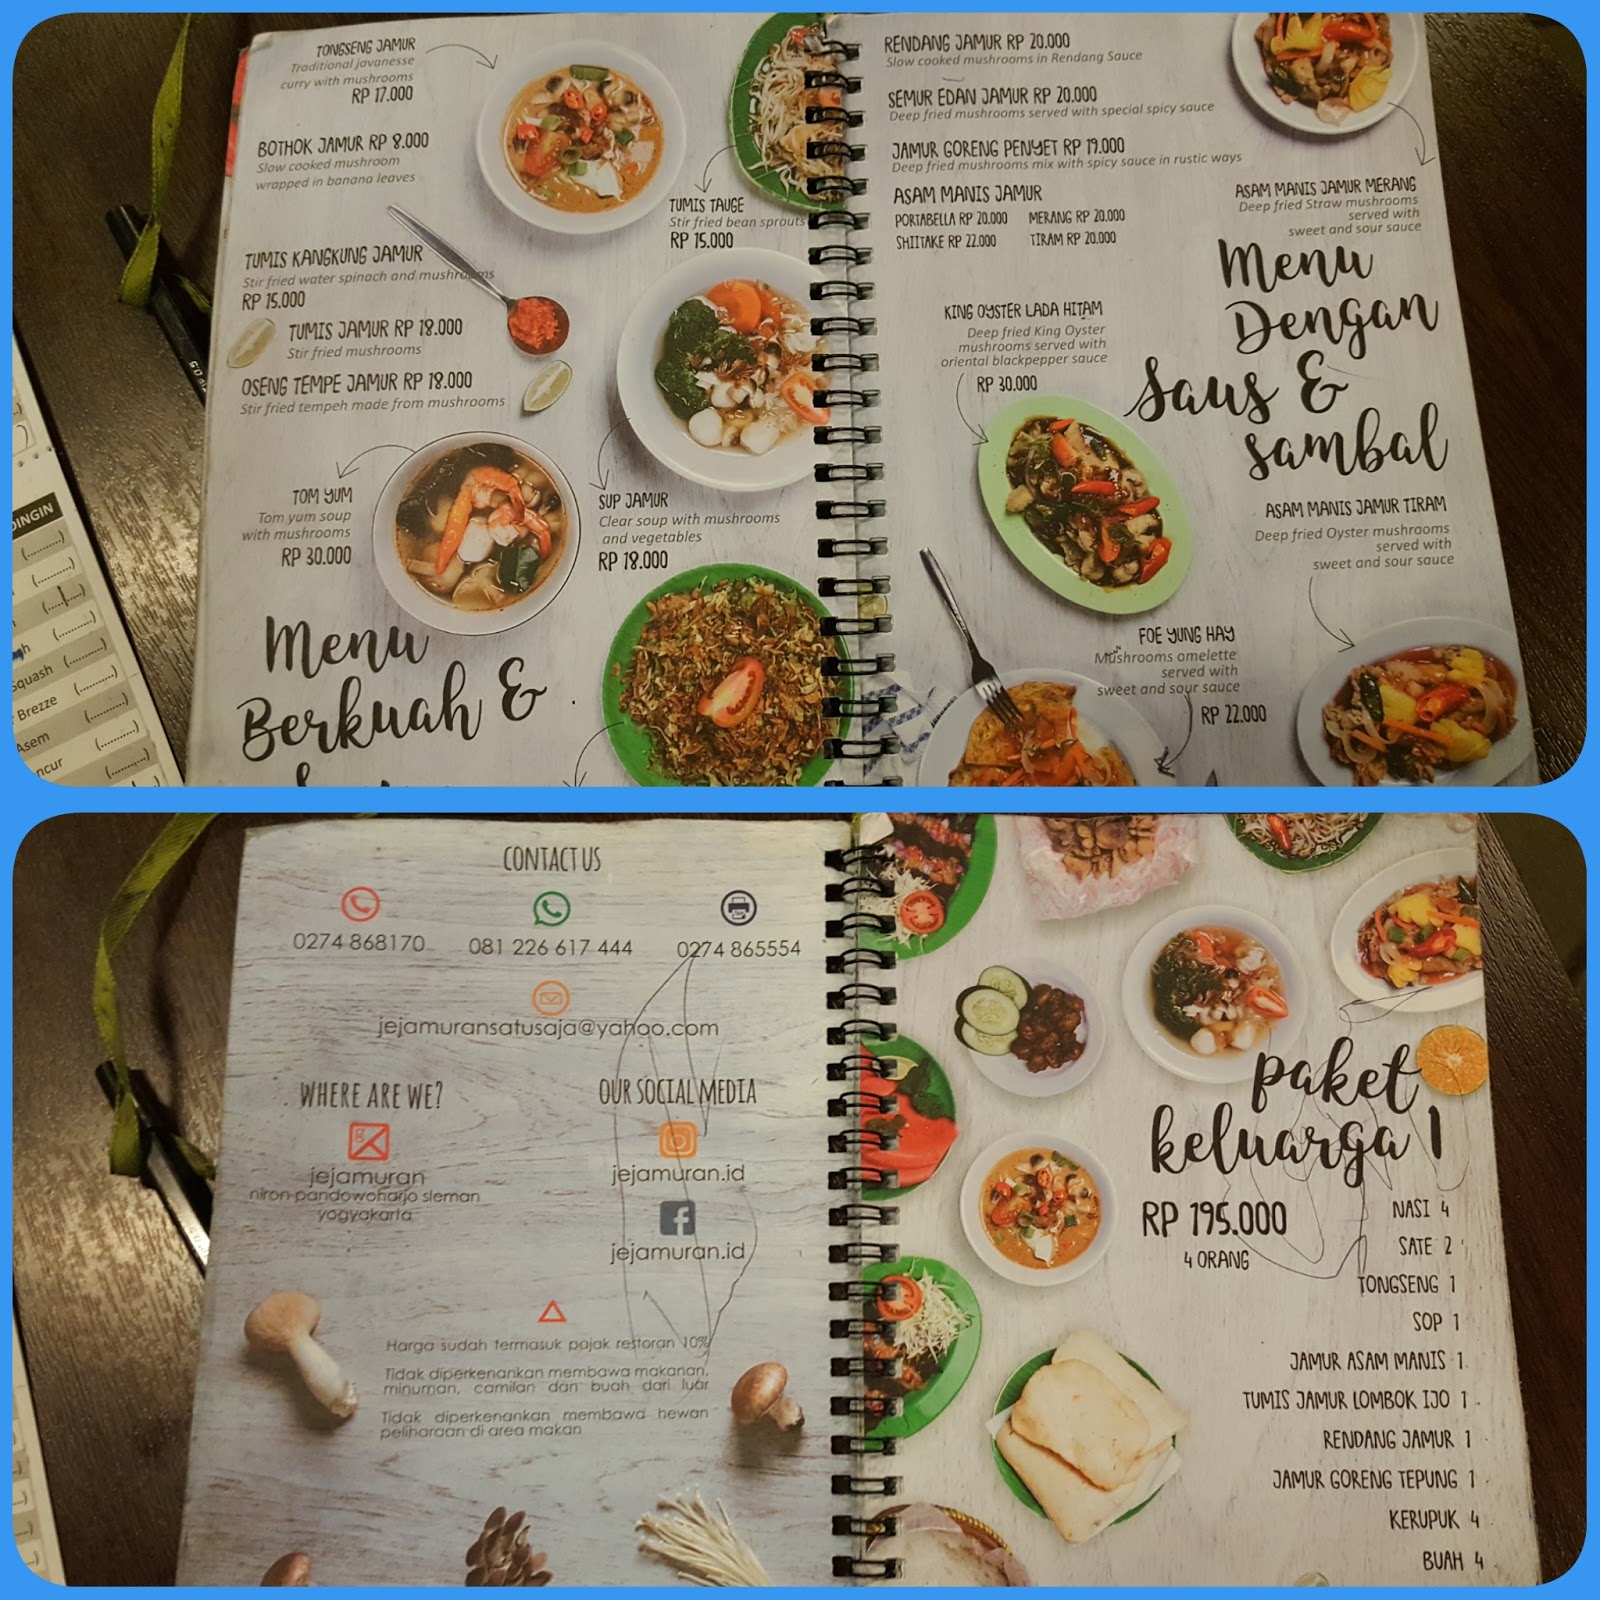 TONGSENG JAMUR
Traditional javanesse
curry with mushrooms
RP 17.000
BOTHOK JAMUR RP 8.000
Slow cooked mushroom
wrapped in banana leaves
TUMIS TAUGE
Stir fried bean sprouts
RP 15.000
TUMIS KANGKUNG JAMUR
Stir fried water spinach and mushrooms
RP 15.000
TUMIS JAMUR RP 18.000
Stir fried mushrooms
OSENG TEMPE JAMUR RP 18.000
Stir fried tempeh made from mushrooms
TOM YUM
Tom yum soup
with mushrooms
RP 30.000
SUP JAMUR
Clear soup with mushrooms
and vegetables
RP 18.000
Menu
Berkuah &
RENDANG JAMUR RP 20.000
Slow cooked mushrooms in Rendang Sauce
SEMUR EDAN JAMUR RP 20.000
Deep fried mushrooms served with special spicy sauce
JAMUR GORENG PENYET RP 19.000
Deep fried mushrooms mix with spicy sauce in rustic ways
ASAM MANIS JAMUR
PORTABELLA RP 20.000 MERANG RP 20.000
SHIITAKE RP 22.000 TIRAM RP 20.000
ASAM MANIS JAMUR MERANG
Deep fried Straw mushrooms
served with
sweet and sour sauce
Menu
Dengan
Saus &
sambal
KING OYSTER LADA HITAM
Deep fried King Oyster
mushrooms served with
oriental blackpepper sauce
RP 30.000
ASAM MANIS JAMUR TIRAM
Deep fried Oyster mushrooms
served with
sweet and sour sauce
FOE YUNG HAY
Mushrooms omelette
served with
sweet and sour sauce
RP 22.000
DINGIN
Squash (..........)
Brezze (..........)
Asem (..........)
ncur (..........)
CONTACT US
0274 868170 081 226 617 444 0274 865554
jejamuransatusaja@yahoo.com
WHERE ARE WE?
jejamuran
niron pandowoharjo sleman
yogyakarta
OUR SOCIAL MEDIA
jejamuran.id
jejamuran.id
Harga sudah termasuk pajak restoran 10%
Tidak diperkenankan membawa makanan,
minuman, camilan dan buah dari luar
Tidak diperkenankan membawa hewan
peliharaan di area makan
paket
keluarga 1
RP 195.000
4 ORANG
NASI 4
SATE 2
TONGSENG 1
SOP 1
JAMUR ASAM MANIS 1
TUMIS JAMUR LOMBOK IJO 1
RENDANG JAMUR 1
JAMUR GORENG TEPUNG 1
KERUPUK 4
BUAH 4